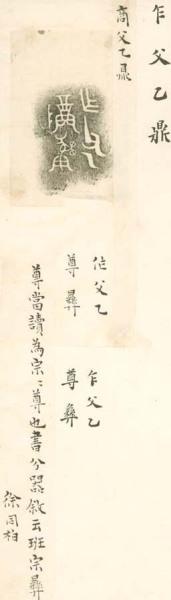 乍父乙鼎
商父乙鼎
作父乙
尊彞
乍父乙
尊彝
尊當讀為宗〻尊也書分器敘云班宗彝
徐同柏